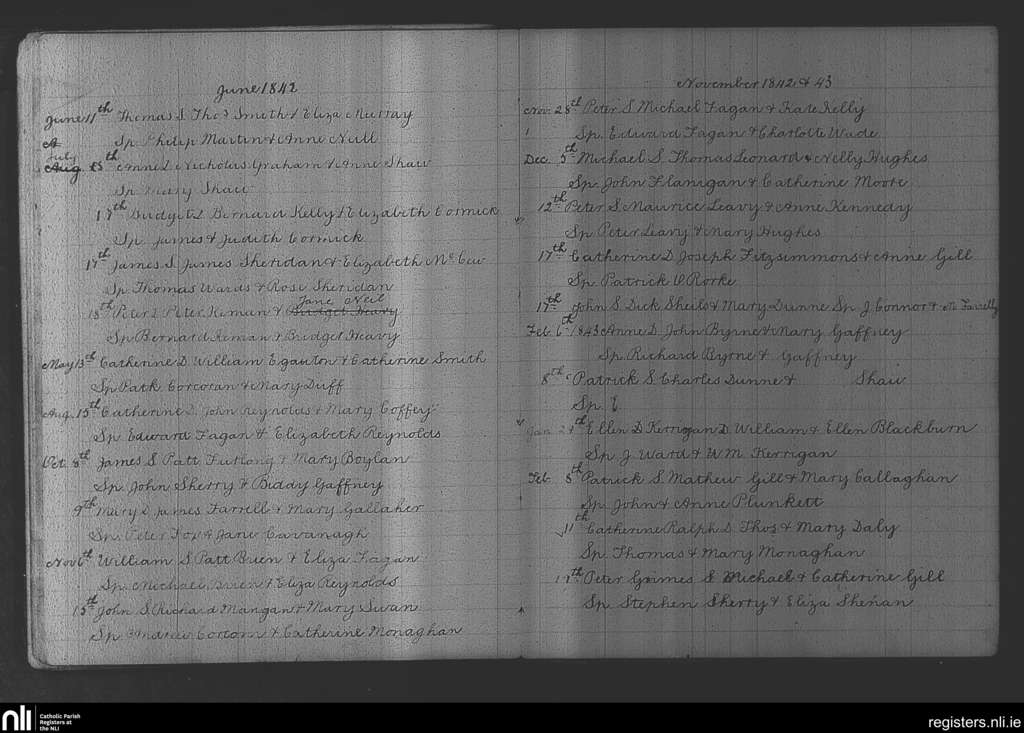 June 1842
June 11th Thomas S. Thos Smith & Eliza Murray
A Sp. Philip Martin & Anne Null
July
Aug. 15th Anne D. Nicholas Graham & Anne Shaw
Sp. Mary Shaw
17th Bridget D. Bernard Kelly & Elizabeth Cormick
Sp. James & Judith Cormick
17th James S. James Sheridan & Elizabeth Mc
Sp. Thomas Wards & Rose Sheridan
Jane Neil
18th Peter S. Peter Kernan & Bridget Heavy
Sp. Bernard Kernan & Bridget Heavy
May 13th Catherine D. William Egauton & Catherine Smith
Sp. Patk Corcoran & Mary Duff
Aug. 15th Catherine D. John Reynolds & Mary Coffey
Sp. Edward Fagan & Elizabeth Reynolds
Oct. 8th James S. Patt Furlong & Mary Boylan
Sp. John Sherry & Biddy Gaffney
9th Mary D. James Farrell & Mary Gallaher
Sp. Peter Fox & Jane Cavanagh
Nov 6th William S Patt Buen & Eliza Fagan
Sp. Michael Buen & Eliza Reynolds
15th John S. Richard Mangan & Mary Swan
Sp. Andrew Corcoran & Catherine Monaghan
November 1842 & 43
Nov. 28th Peter S. Michael Fagan & Kate Kelly
Sp. Edward Fagan & Charlotte Wade
Dec. 5th Michael S. Thomas Leonard & Nelly Hughes
Sp. John Flanigan & Catherine Moore
12th Peter S. Maurice Leavy & Anne Kennedy
Sp. Peter Leavy & Mary Hughes
17th Catherine D. Joseph Fitzsimmons & Anne Gill
Sp. Patrick O'Rorke
17th John S. Dick Sheils & Mary Dunne Sp. J. Connor & M Farrelly
Feb. 6th 1843 Anne D. John Byrne & Mary Gaffney
Sp. Richard Byrne & Gaffney
8th Patrick S. Charles Dunne & Shaw
Sp. E
Jan. 24th Ellen D Kerrigan D. William & Ellen Blackburn
Sp. J. Ward & W M. Kerrigan
Feb. 8th Patrick S. Mathew Gill & Mary Callaghan
Sp. John & Anne Plunkett
11th Catherine Ralph D. Thos & Mary Daly
Sp. Thomas & Mary Monaghan
17th Peter Grimes S Michael & Catherine Gill
Sp. Stephen Sherry & Eliza Shenan
nli
Catholic Parish
Registers at
the NLI
registers.nli.ie